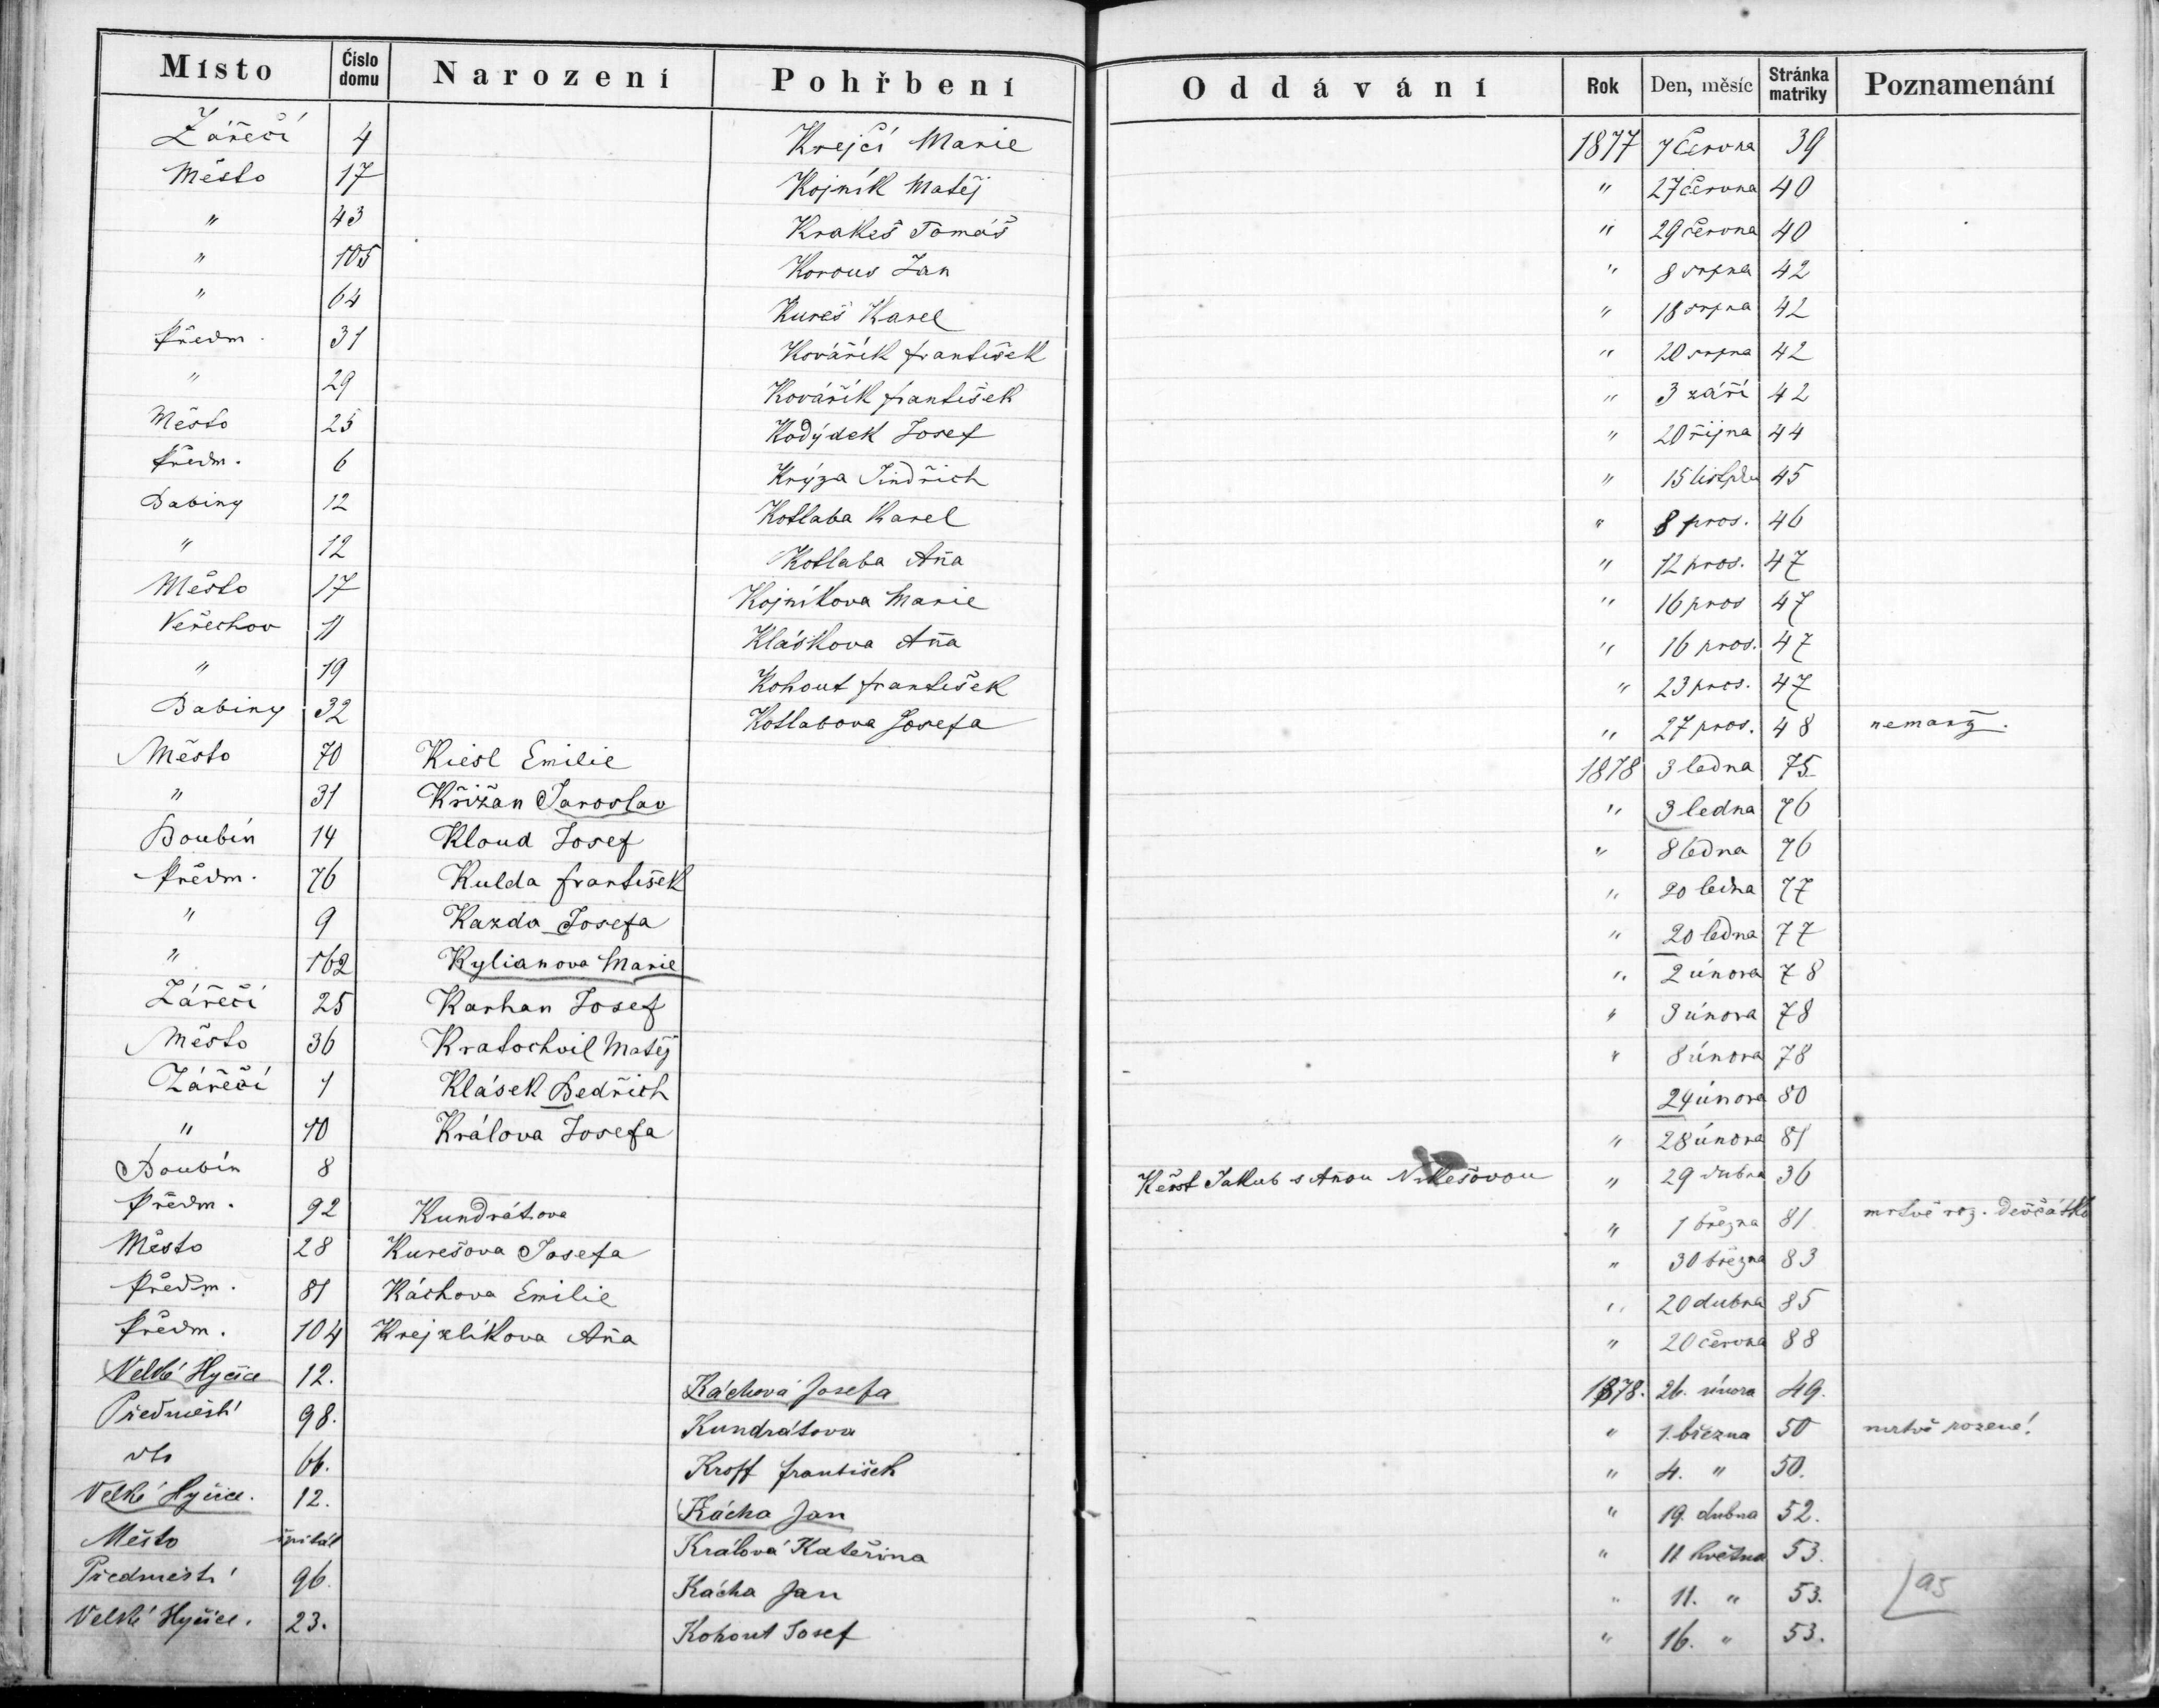 Místo Číslo domu Narození Pohřbení Oddávání Rok Den, měsíc Stránka matriky Poznamenání
Zářečí 4 Krejčí Marie 1877 7 června 39
Město 17 Kojník Matěj " 27 června 40
" 43 Krakeš Tomáš " 29 června 40
" 105 Korous Jan " 8 srpna 42
" 64 Kureš Karel " 18 srpna 42
Předm. 31 Kovářík František " 20 srpna 42
" 29 Kovářík František " 3 září 42
Město 25 Kodýdek Josef " 20 října 44
Předm. 6 Krýza Jindřich " 15 listpdu 45
Babiny 12 Kotlaba Karel " 8 pros. 46
" 12 Kotlaba Aña " 12 pros. 47
Město 17 Kojníkova Marie " 16 pros 47
Veřechov 11 Kláskova Aña " 16 pros. 47
" 19 Kohout František " 23 pros. 47
Babiny 32 Kotlabova Josefa " 27 pros. 48 nemanž.
Město 70 Kiesl Emilie 1878 3 ledna 75
" 31 Křižan Jaroslav " 3 ledna 76
Boubín 14 Kloud Josef " 8 ledna 76
Předm. 76 Kulda František " 20 ledna 77
" 9 Kazda Josefa " 20 ledna 77
" 162 Kylianova Marie " 2 února 78
Zářečí 25 Karhan Josef " 3 února 78
Město 36 Kratochvil Matěj " 8 února 78
Zářečí 1 Klásek Bedřich 24 února 80
" 10 Králova Josefa " 28 února 81
Boubín 8 Keřst Jakub s Añou Nikešovou " 29 dubna 36
Předm. 92 Kundrátova " 1 března 81 mrtvě roz. děvčátko
Město 28 Kurešova Josefa " 30 března 83
Předm. 81 Káchova Emilie " 20 dubna 85
Předm. 104 Krejzlíkova Aña " 20 června 88
Velké Hyčice 12. Káchová Josefa 1878. 26. února 49.
Předměstí 98. Kundrátova " 1. března 50 mrtvě rozené!
dto 66. Kroff František " 4. " 50.
Velké Hyčice. 12. Kácha Jan " 19. dubna 52.
Město špitál Králová Kateřina " 11 května 53.
Předměstí 96. Kácha Jan " 11. " 53. 95
Velké Hyčice. 23. Kohout Josef " 16. " 53.